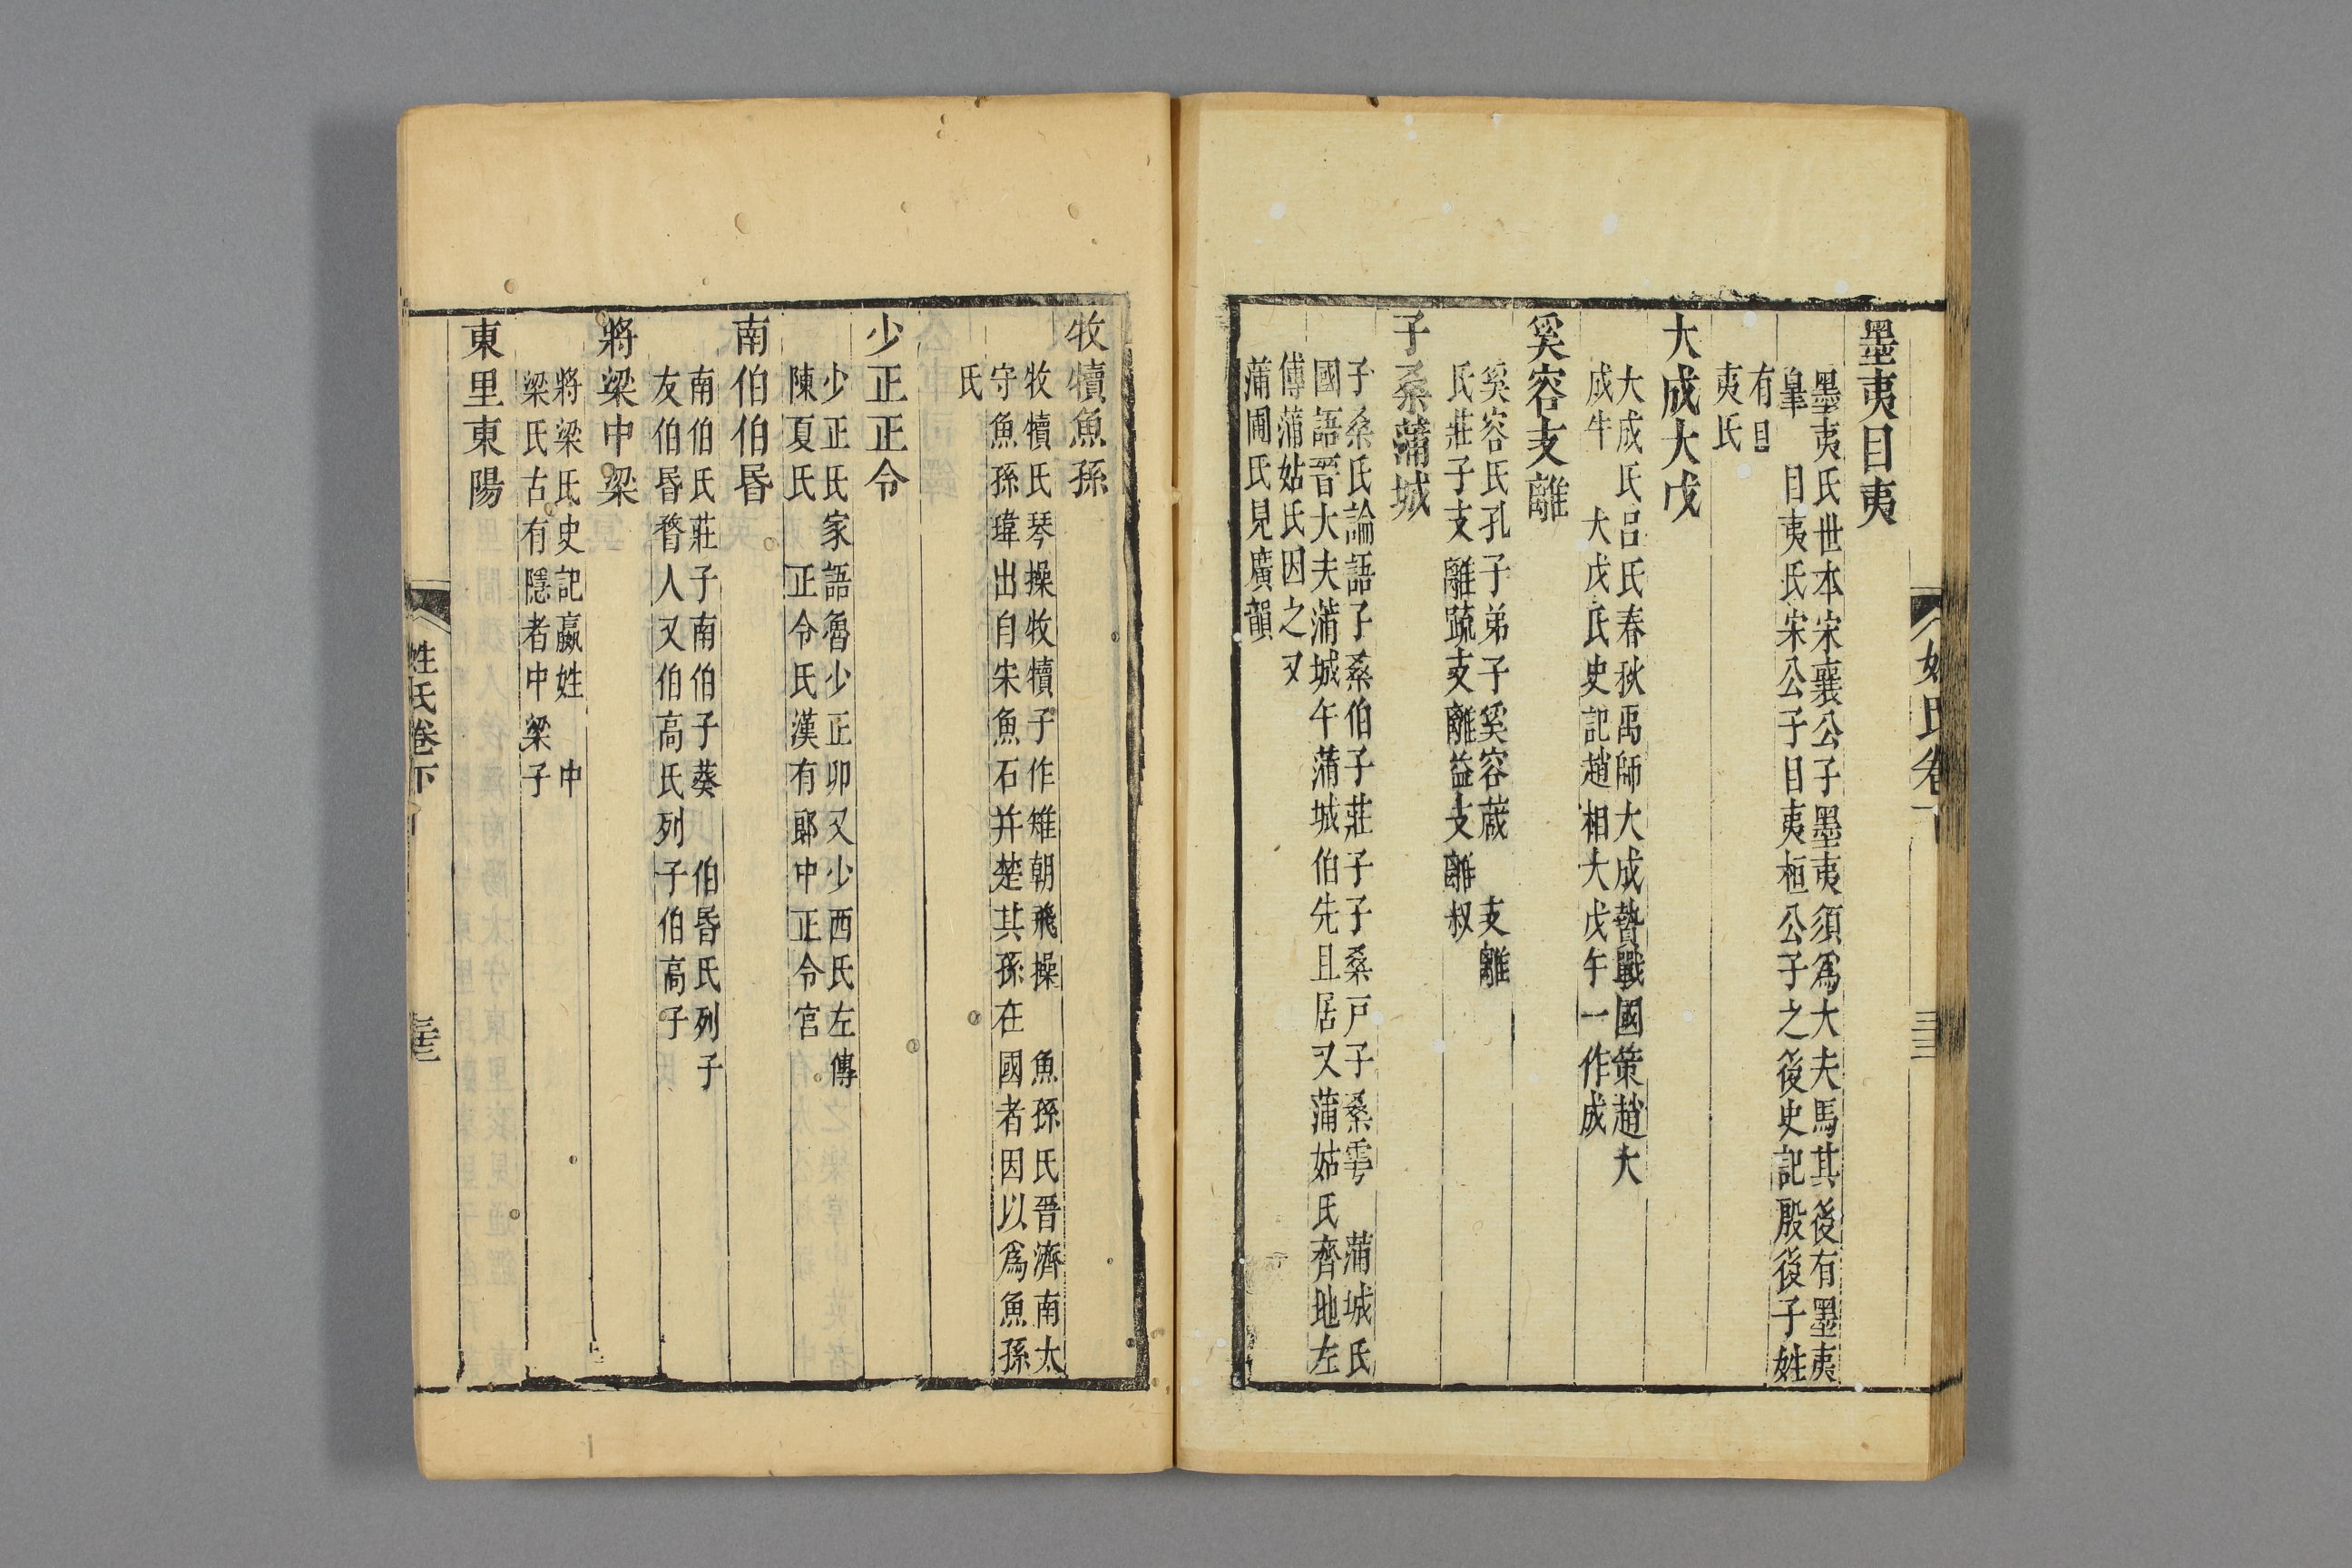 墨夷目夷
墨夷氏世本宋襄公子墨夷須爲大夫馬其後有墨夷
皐 目夷氏宋公子目夷桓公子之後史記殷後子姓
有目
夷氏
大成大戊
大成氏呂氏春秋禹師大成贄戰國策趙大
成牛 大戊氏史記趙相大戊午一作成
奚容支離
奚容氏孔子弟子奚容蒧 支離
氏莊子支離䟽支離益支離叔
子桑蒲城
子桑氏論語子桑伯子莊子子桑戸子桑雩 蒲城氏
國語晋大夫蒲城午蒲城伯先且居又蒲姑氏齊地左
傳蒲姑氏因之又
蒲圃氏見廣韻
姓氏卷下
牧犢魚孫
牧犢氏琴操牧犢子作雉朝飛操 魚孫氏晋濟南太
守魚孫瑋出自宋魚石并楚其孫在國者因以爲魚孫
氏
少正正令
少正氏家語魯少正卯又少西氏左傳
陳夏氏 正令氏漢有郎中正令官
南伯伯昏
南伯氏莊子南伯子葵 伯昏氏列子
友伯昏瞀人又伯高氏列子伯高子
將梁中梁
將梁氏史記嬴姓 中
梁氏古有隱者中梁子
東里東陽
姓氏卷下